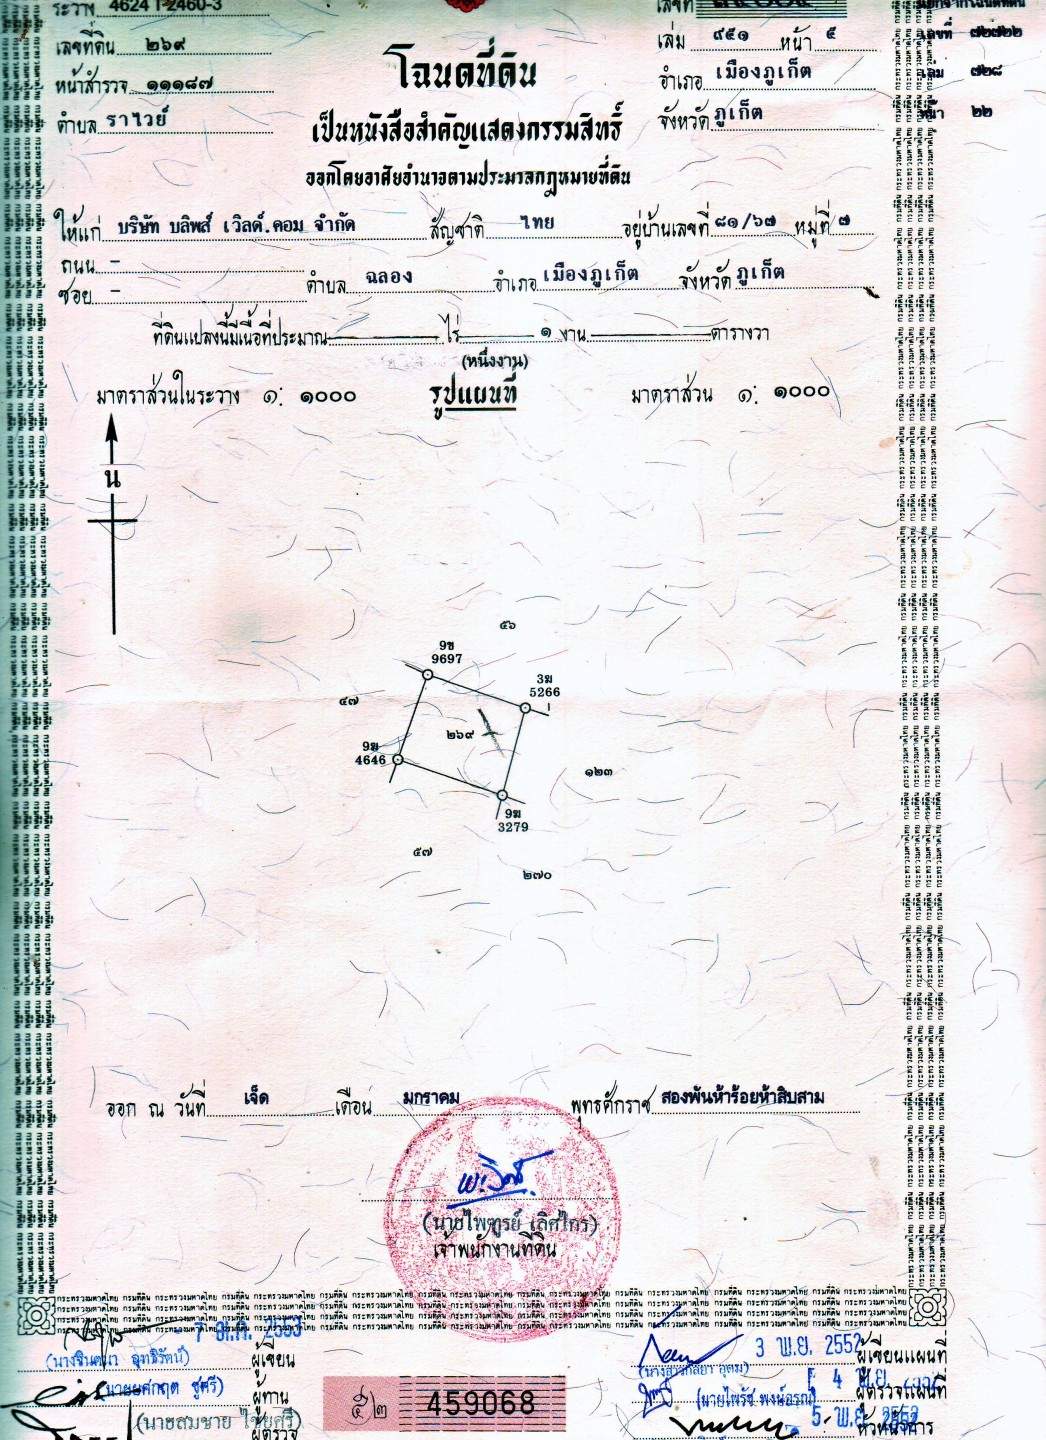 ระวาง 4624 I 2460-3
เลขที่ดิน ๒๖๙
หน้าสำรวจ ๑๑๑๘๗
ตำบล ราไวย์
โฉนดที่ดิน
เป็นหนังสือสำคัญแสดงกรรมสิทธิ์
ออกโดยอาศัยอำนาจตามประมวลกฎหมายที่ดิน
เลขที่
เล่ม ๙๕๑ หน้า ๕
อำเภอ เมืองภูเก็ต
จังหวัด ภูเก็ต
แยกจากโฉนดที่ดิน
เลขที่ ๗๒๗๒๒
เล่ม ๗๒๘
หน้า ๒๒
ให้แก่ บริษัท บลิพส์ เวิลด์.คอม จำกัด สัญชาติ ไทย อยู่บ้านเลขที่ ๘๑/๖๗ หมู่ที่ ๗
ถนน –
ซอย – ตำบล ฉลอง อำเภอ เมืองภูเก็ต จังหวัด ภูเก็ต
ที่ดินแปลงนี้มีเนื้อที่ประมาณ ไร่ ๑ งาน ตารางวา
(หนึ่งงาน)
มาตราส่วนในระวาง ๑: ๑๐๐๐ รูปแผนที่ มาตราส่วน ๑: ๑๐๐๐
น
๕๖
9ข
9697
3ฆ
5266
๔๗
๒๖๙
9ฆ
4646
๑๒๓
9ฆ
3279
๕๗
๒๗๐
ออก ณ วันที่ เจ็ด เดือน มกราคม พุทธศักราช สองพันห้าร้อยห้าสิบสาม
(นายไพฑูรย์ เลิศไกร)
เจ้าพนักงานที่ดิน
2553
ผู้เขียน
ผู้ทาน
(นายสมชาย ไชยศรี)
ผู้ตรวจ
๕๒ 459068
3 พ.ย. 2552 ผู้เขียนแผนที่
ผู้ตรวจแผนที่
5 พ.ย. 2552 หัวหน้าการ